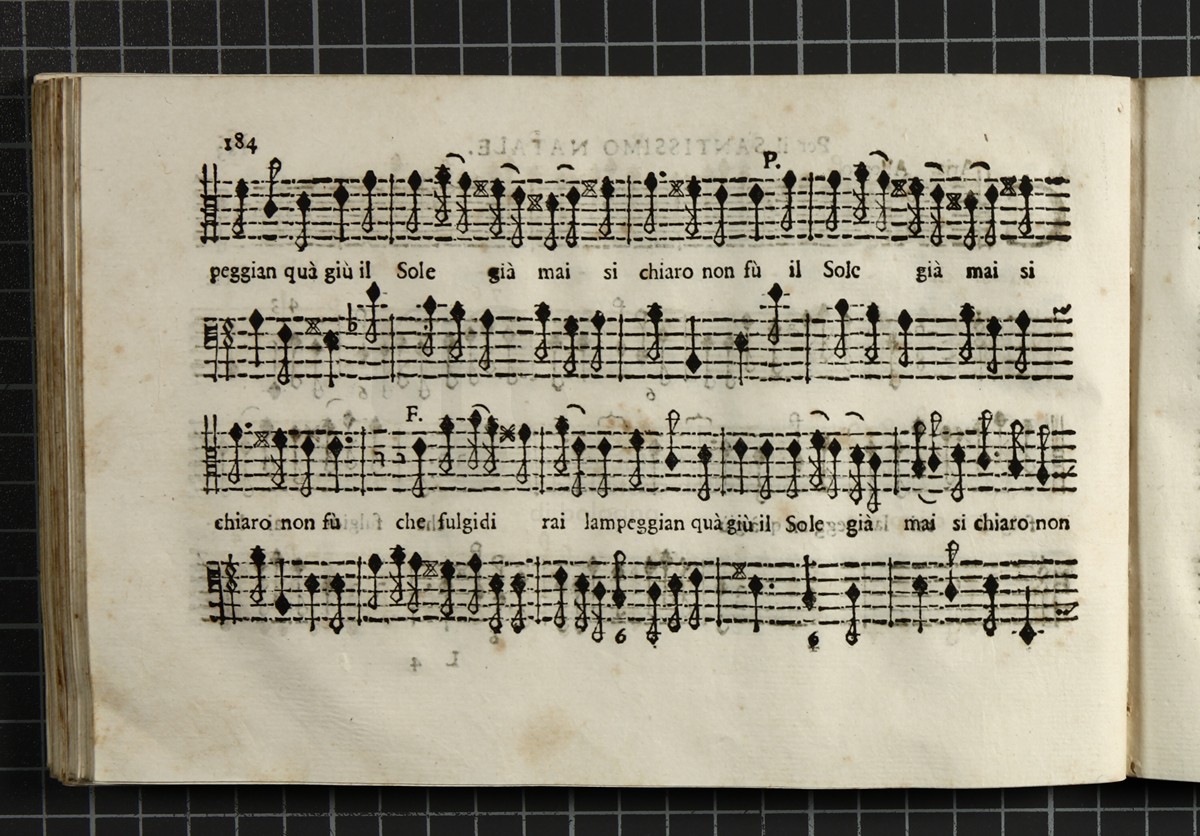 184
P.
peggian quà giù il Sole già mai si chiaro non fù il Sole già mai si
6
F.
chiaro non fù che fulgidi rai lampeggian quà giù il Sole già mai si chiaro non
6 6